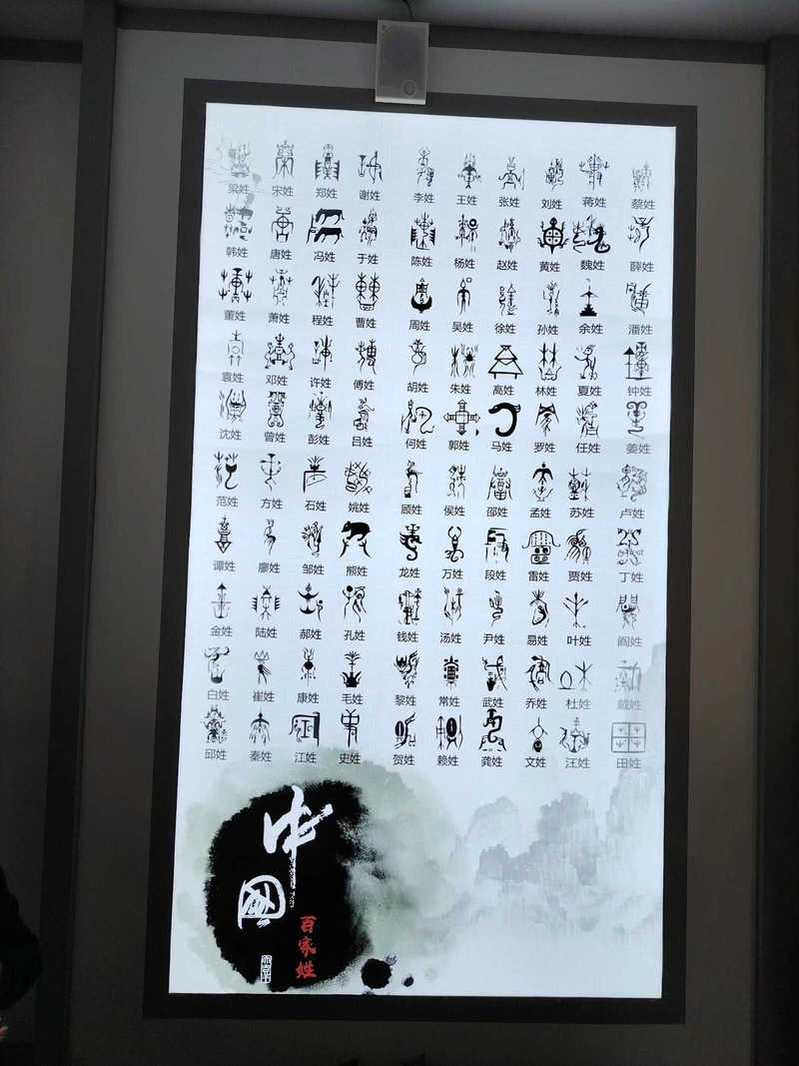 梁姓 宋姓 郑姓 谢姓 李姓 王姓 张姓 刘姓 蒋姓 蔡姓
韩姓 唐姓 冯姓 于姓 陈姓 杨姓 赵姓 黄姓 魏姓 薛姓
董姓 萧姓 程姓 曹姓 周姓 吴姓 徐姓 孙姓 余姓 潘姓
袁姓 邓姓 许姓 傅姓 胡姓 朱姓 高姓 林姓 夏姓 钟姓
沈姓 曾姓 彭姓 吕姓 何姓 郭姓 马姓 罗姓 任姓 姜姓
范姓 方姓 石姓 姚姓 顾姓 侯姓 邵姓 孟姓 苏姓 卢姓
谭姓 廖姓 邹姓 熊姓 龙姓 万姓 段姓 雷姓 贾姓 丁姓
金姓 陆姓 郝姓 孔姓 钱姓 汤姓 尹姓 易姓 叶姓 阎姓
白姓 崔姓 康姓 毛姓 黎姓 常姓 武姓 乔姓 杜姓 戴姓
邱姓 秦姓 江姓 史姓 贺姓 赖姓 龚姓 文姓 汪姓 田姓
中
国
百家姓